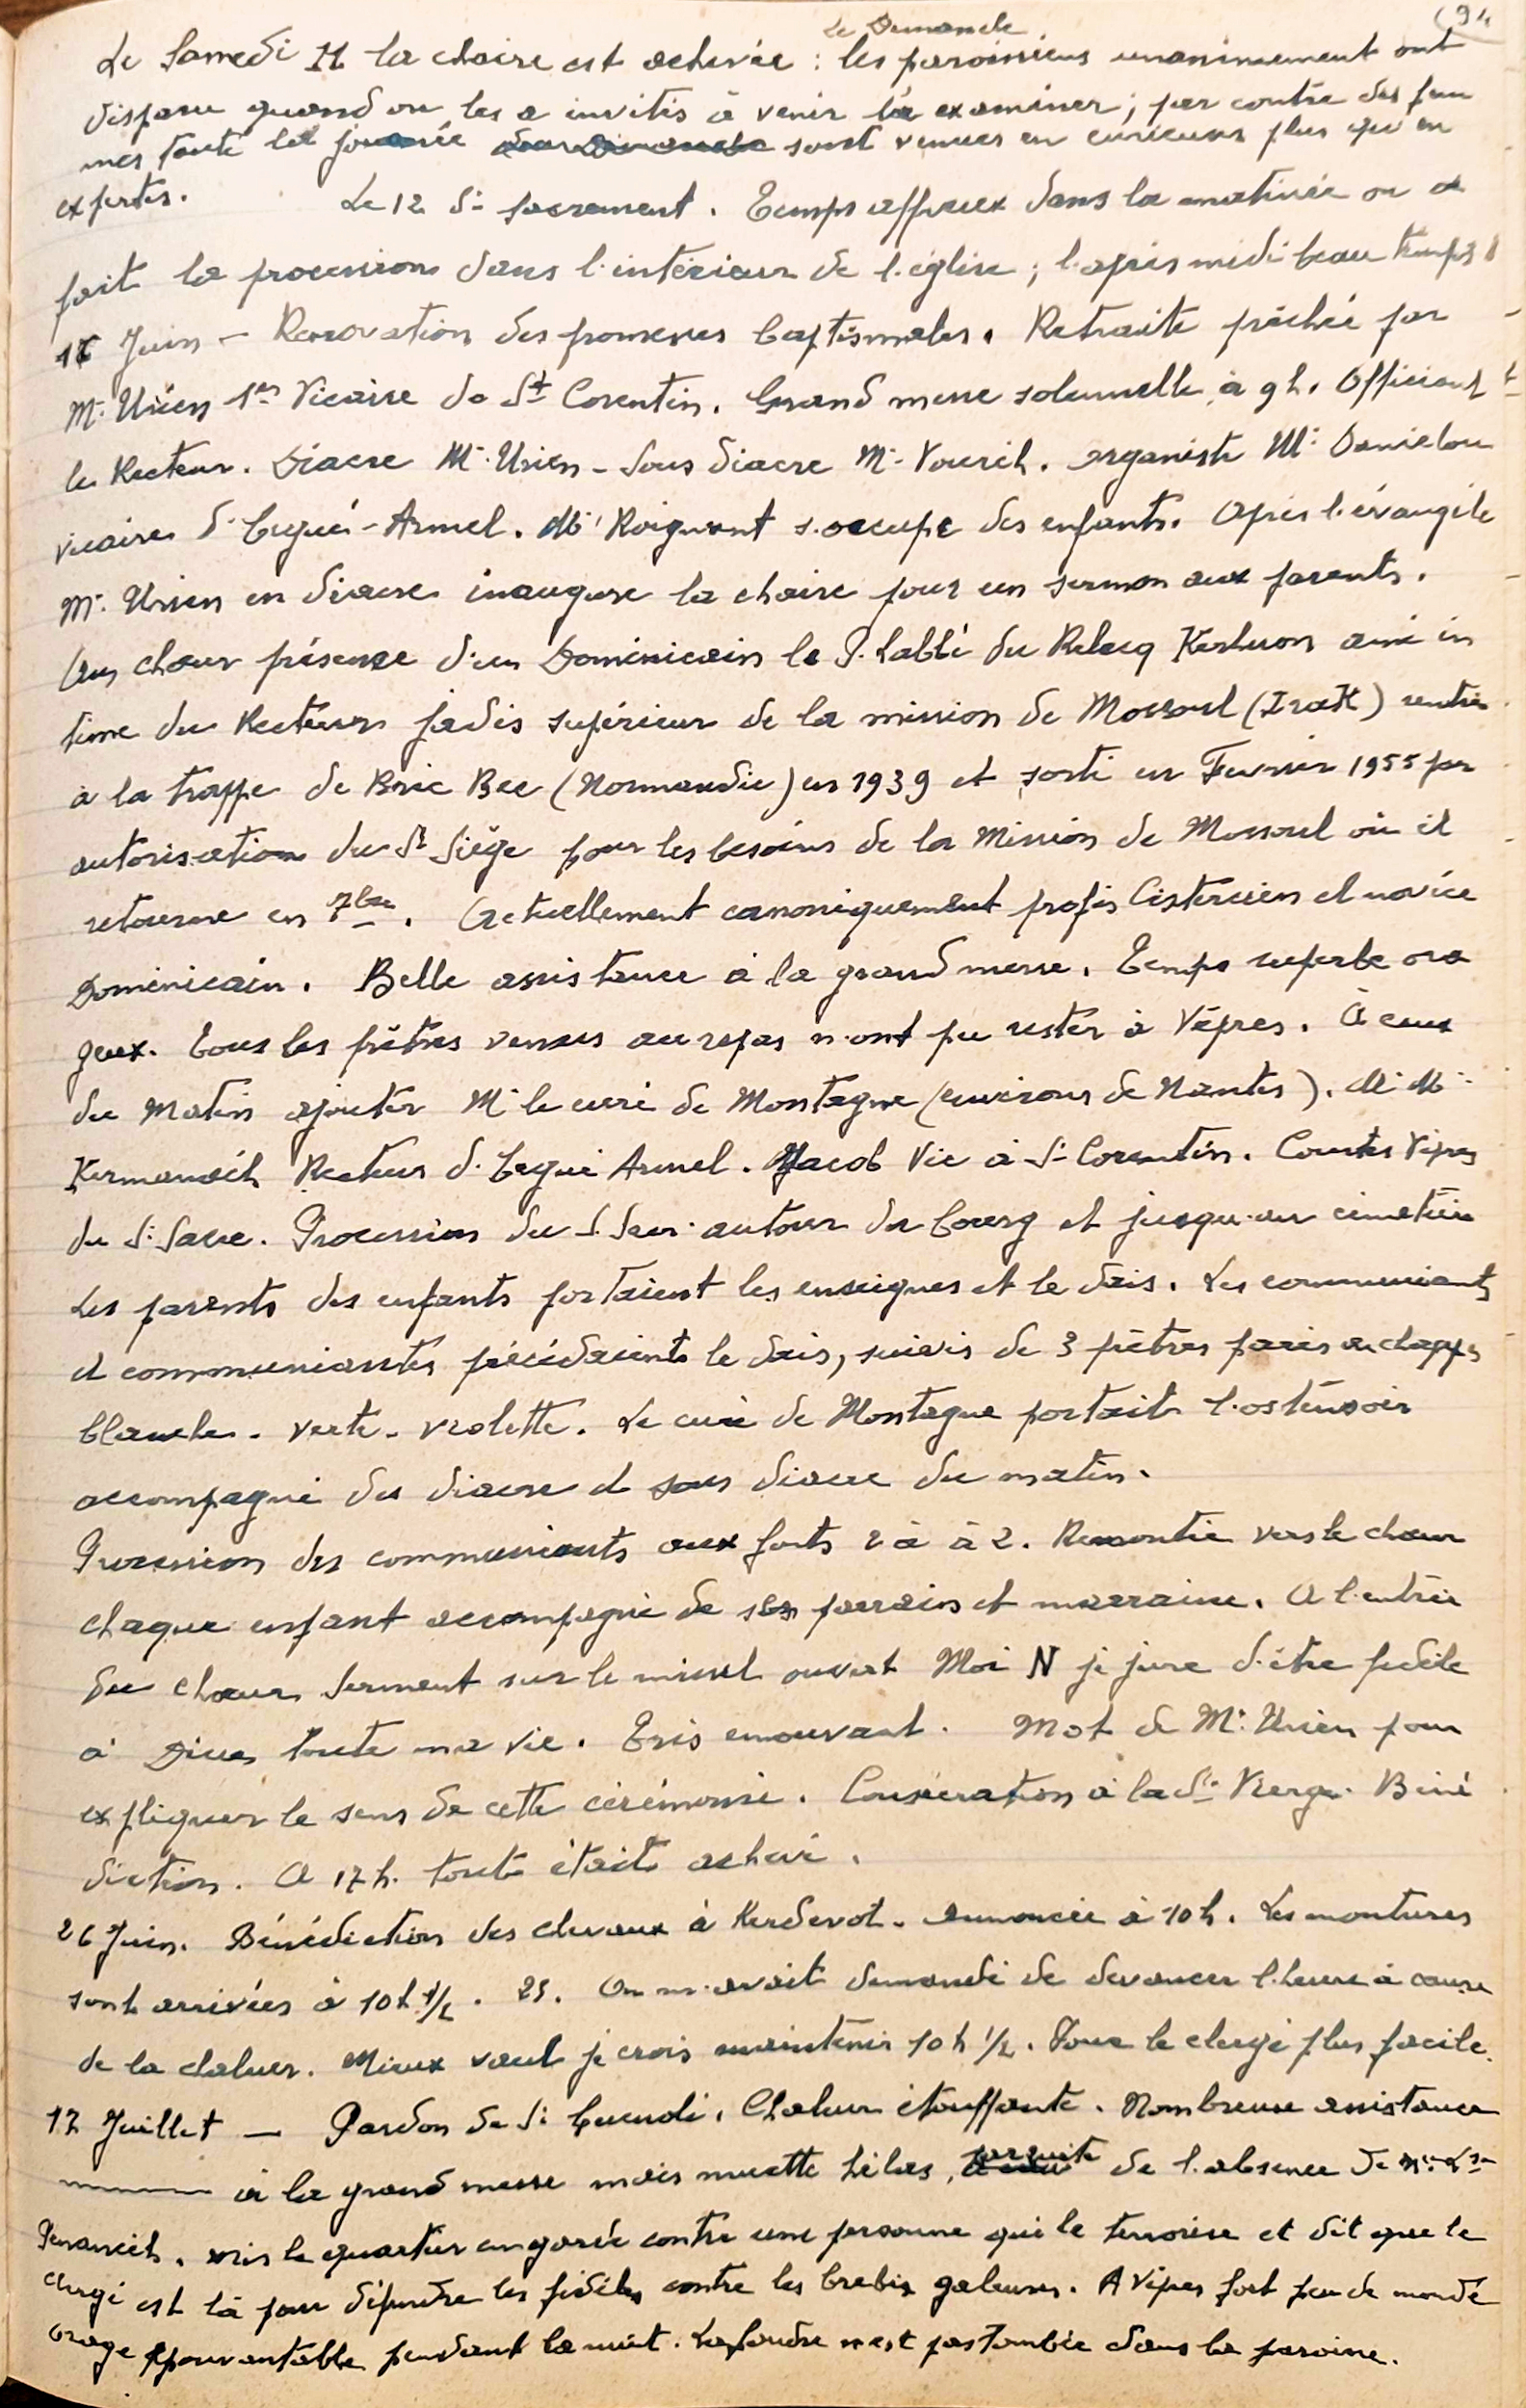 (94
Le Dimanche
Le Samedi 11 la chaire est achevée : les paroissiens unanimement ont
disparu quand on les a invités à venir la examiner ; par contre des fem
mes toute la journée sont venues en curieuses plus qu'en
expertes. Le 12 St Sacrement. Temps affreux dans la matinée on a
fait la procession dans l'intérieur de l'église ; l'après midi beau temps
Juin - Renovation des promesses baptismales. Retraite prêchée par
Mr. Urien 1er Vicaire de St Corentin. Grand messe solennelle à 9 h. Officiant
le Recteur. Diacre Mr. Urien - Sous diacre Mr. Vourch. organiste Mr. Danielou
vicaire d'Ergué-Armel. Mr Roignant s'occupe des enfants. Après l'évangile
Mr. Urien en diacre inaugure la chaire pour un sermon aux parents.
Au chœur présence d'un Dominicain le P. Labbé du Relecq Kerhuon ami in
time du Recteur jadis supérieur de la mission de Mossoul (IraK) rentré
à la trappe de Bric Bec (Normandie) en 1939 et sorti en Fevrier 1955 par
autorisation du St Siège pour les besoins de la Mission de Mossoul où il
retourne en 7bre. Actuellement canoniquement profès Cistercien et novice
Dominicain. Belle assistance à la grand messe. Temps superbe ora
geux. Tous les prêtres venus au repas n'ont pu rester à Vêpres. À ceux
du matin ajouter Mr le curé de Montagne (environs de Nantes). M. Mr.
Kermanach Recteur d'Ergué Armel. Jacob Vic à St Corentin. Courtes Vêpres
du St Sacre. Procession du S. Sacr. autour du bourg et jusqu'au cimetière
Les parents des enfants portaient les enseignes et le dais. Les communiants
et communiantes précédaient le dais, suivis de 3 prêtres parés en chappes
blanche - verte - violette. Le curé de Montagne portait l'ostensoir
accompagné du diacre et sous diacre du matin.
Procession des communiants aux fonts 2 à à 2. Remontée vers le chœur
chaque enfant accompagné de ses parrain et marraine. A l'entrée
du chœur serment sur le missel ouvert Moi N je jure d'être fidèle
à Dieu toute ma vie. Très emouvant. Mot de Mr. Urien pour
expliquer le sens de cette cérémonie. Consécration à la Ste Vierge. Béné
diction. A 17 h. tout était achevé.
26 Juin. Bénédiction des chevaux à Kerdevot - annoncée à 10 h. Les montures
sont arrivées à 10 h 1/2. 25. On m'avait demandé de devancer l'heure à cause
de la chaleur. Mieux vaut je crois maintenir 10 h 1/2. Pour le clergé plus facile.
17 Juillet — Pardon de St Guenolé. Chaleur étouffante. Nombreuse assistance
à la grand messe mais muette hélas, par suite de l'absence de
. mis le quartier en garde contre une personne qui le terrorise et dit que le
clergé est là pour défendre les fidèles contre les brebis galeuses. A Vêpres fort peu de monde
orage épouvantable pendant la nuit. La foudre n'est pas tombée dans la paroisse.